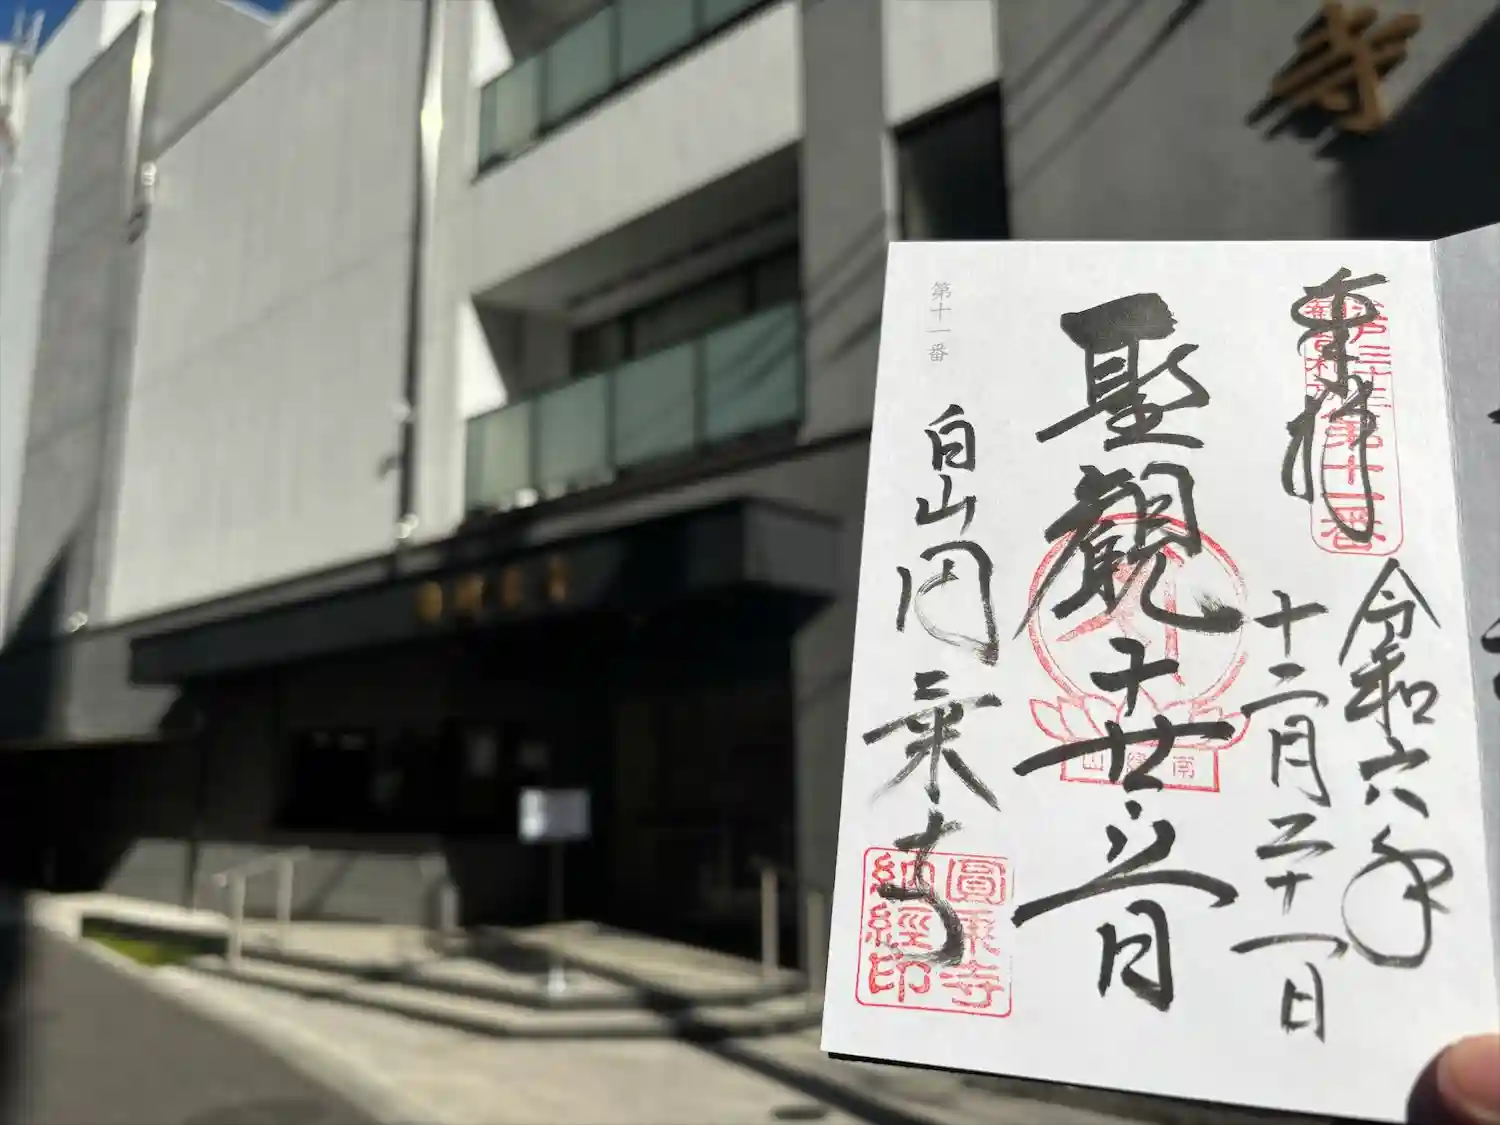 寺
奉拝
江戸三十三
観音札所
第十一番
令和六年
十二月二十一日
聖観世音
南縁山
第十一番
白山円乗寺
圓乗寺
納経印